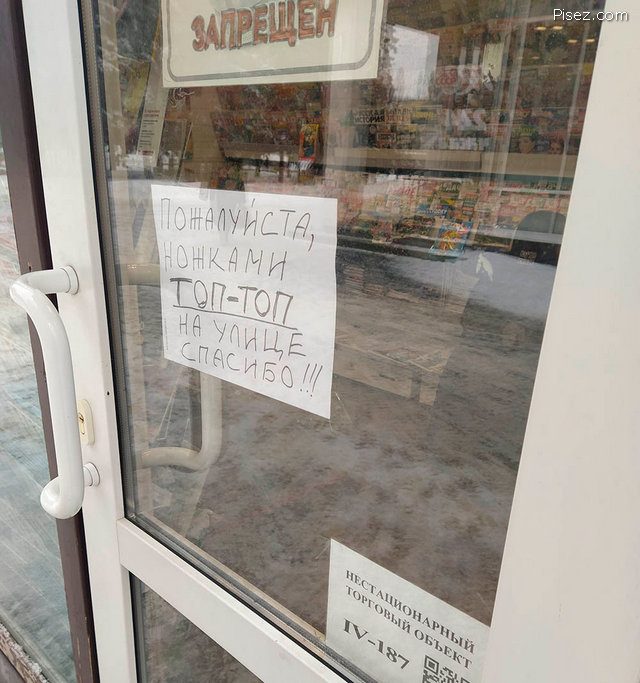 Pisez.com
ЗАПРЕЩЕН
ПОЖАЛУЙСТА,
НОЖКАМИ
ТОП-ТОП
НА УЛИЦЕ
СПАСИБО!!!
НЕСТАЦИОНАРНЫЙ
ТОРГОВЫЙ ОБЪЕКТ
IV-187